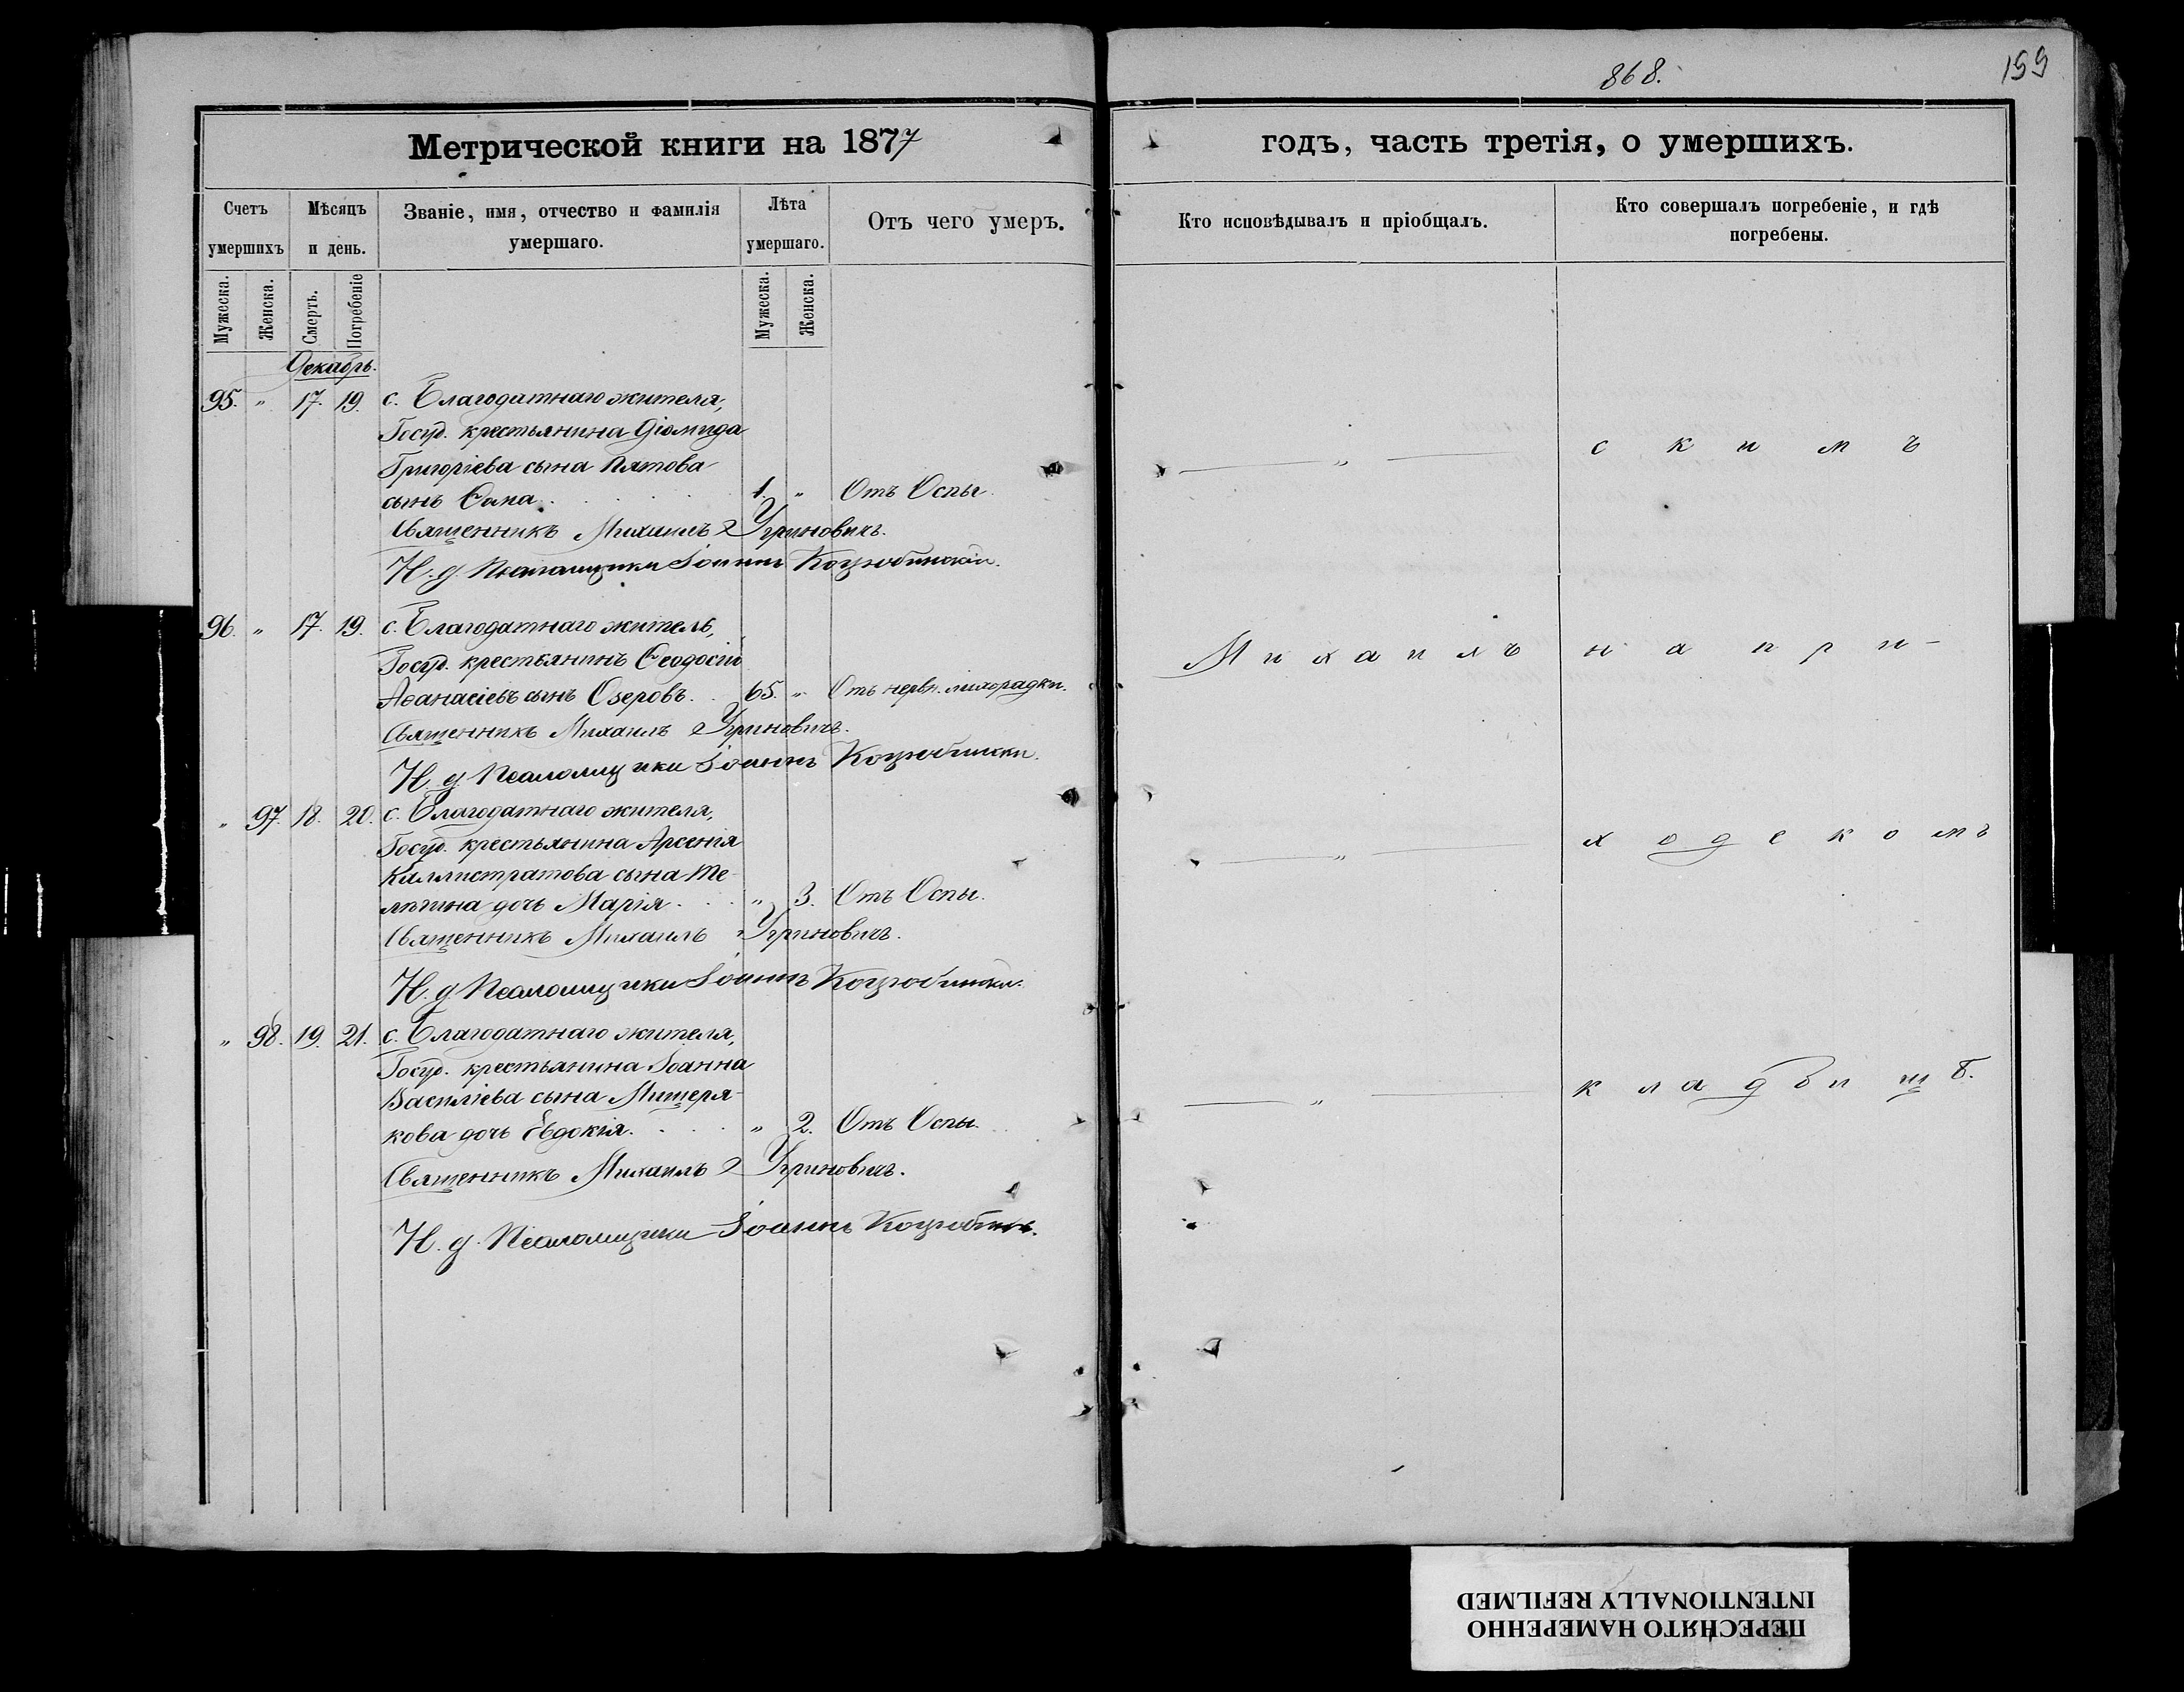 868.
199
Метрической книги на 1877
годъ, часть третія, о умершихъ.
Счетъ умершихъ
Мѣсяцъ и день.
Званіе, имя, отчество и фамилія умершаго.
Лѣта умершаго.
Отъ чего умеръ.
Кто исповѣдывалъ и пріобщалъ.
Кто совершалъ погребеніе, и гдѣ погребены.
Мужеска.
Женска.
Смерть.
Погребеніе
Мужеска.
Женска.
Декабрь.
95. „ 17. 19. с. Благодатнаго жителя,
Госуд. крестьянина Діомида
Григоріева сына Пятова
сынъ Ѳома. 1. „ Отъ Оспы.
Священникъ Михаилъ Угриновичъ.
И. д. Псаломщика Іоаннъ Коцюбинскій.
— „ —
с к и м ъ
96. „ 17. 19. с. Благодатнаго житель,
Госуд. крестьянинъ Ѳеодосій
Аѳанасіевъ сынъ Озеровъ. 65. „ Отъ нервн. лихорадки.
Священникъ Михаилъ Угриновичъ.
И. д. Псаломщика Іоаннъ Коцюбинскій.
М и х а и л ъ
н а п р и -
„ 97. 18. 20. с. Благодатнаго жителя,
Госуд. крестьянина Арсенія
Каллистратова сына Те-
ляпина дочь Марія. „ 3. Отъ Оспы.
Священникъ Михаилъ Угриновичъ.
И. д. Псаломщика Іоаннъ Коцюбинскій.
— „ —
х о д с к о м ъ
„ 98. 19. 21. с. Благодатнаго жителя,
Госуд. крестьянина Іоанна
Василіева сына Мищеря-
кова дочь Евдокія. „ 2. Отъ Оспы.
Священникъ Михаилъ Угриновичъ.
И. д. Псаломщика Іоаннъ Коцюбинскій.
— „ —
к л а д б и щ ѣ.
ПЕРЕСНЯТО НАМЕРЕННО
INTENTIONALLY REFILMED